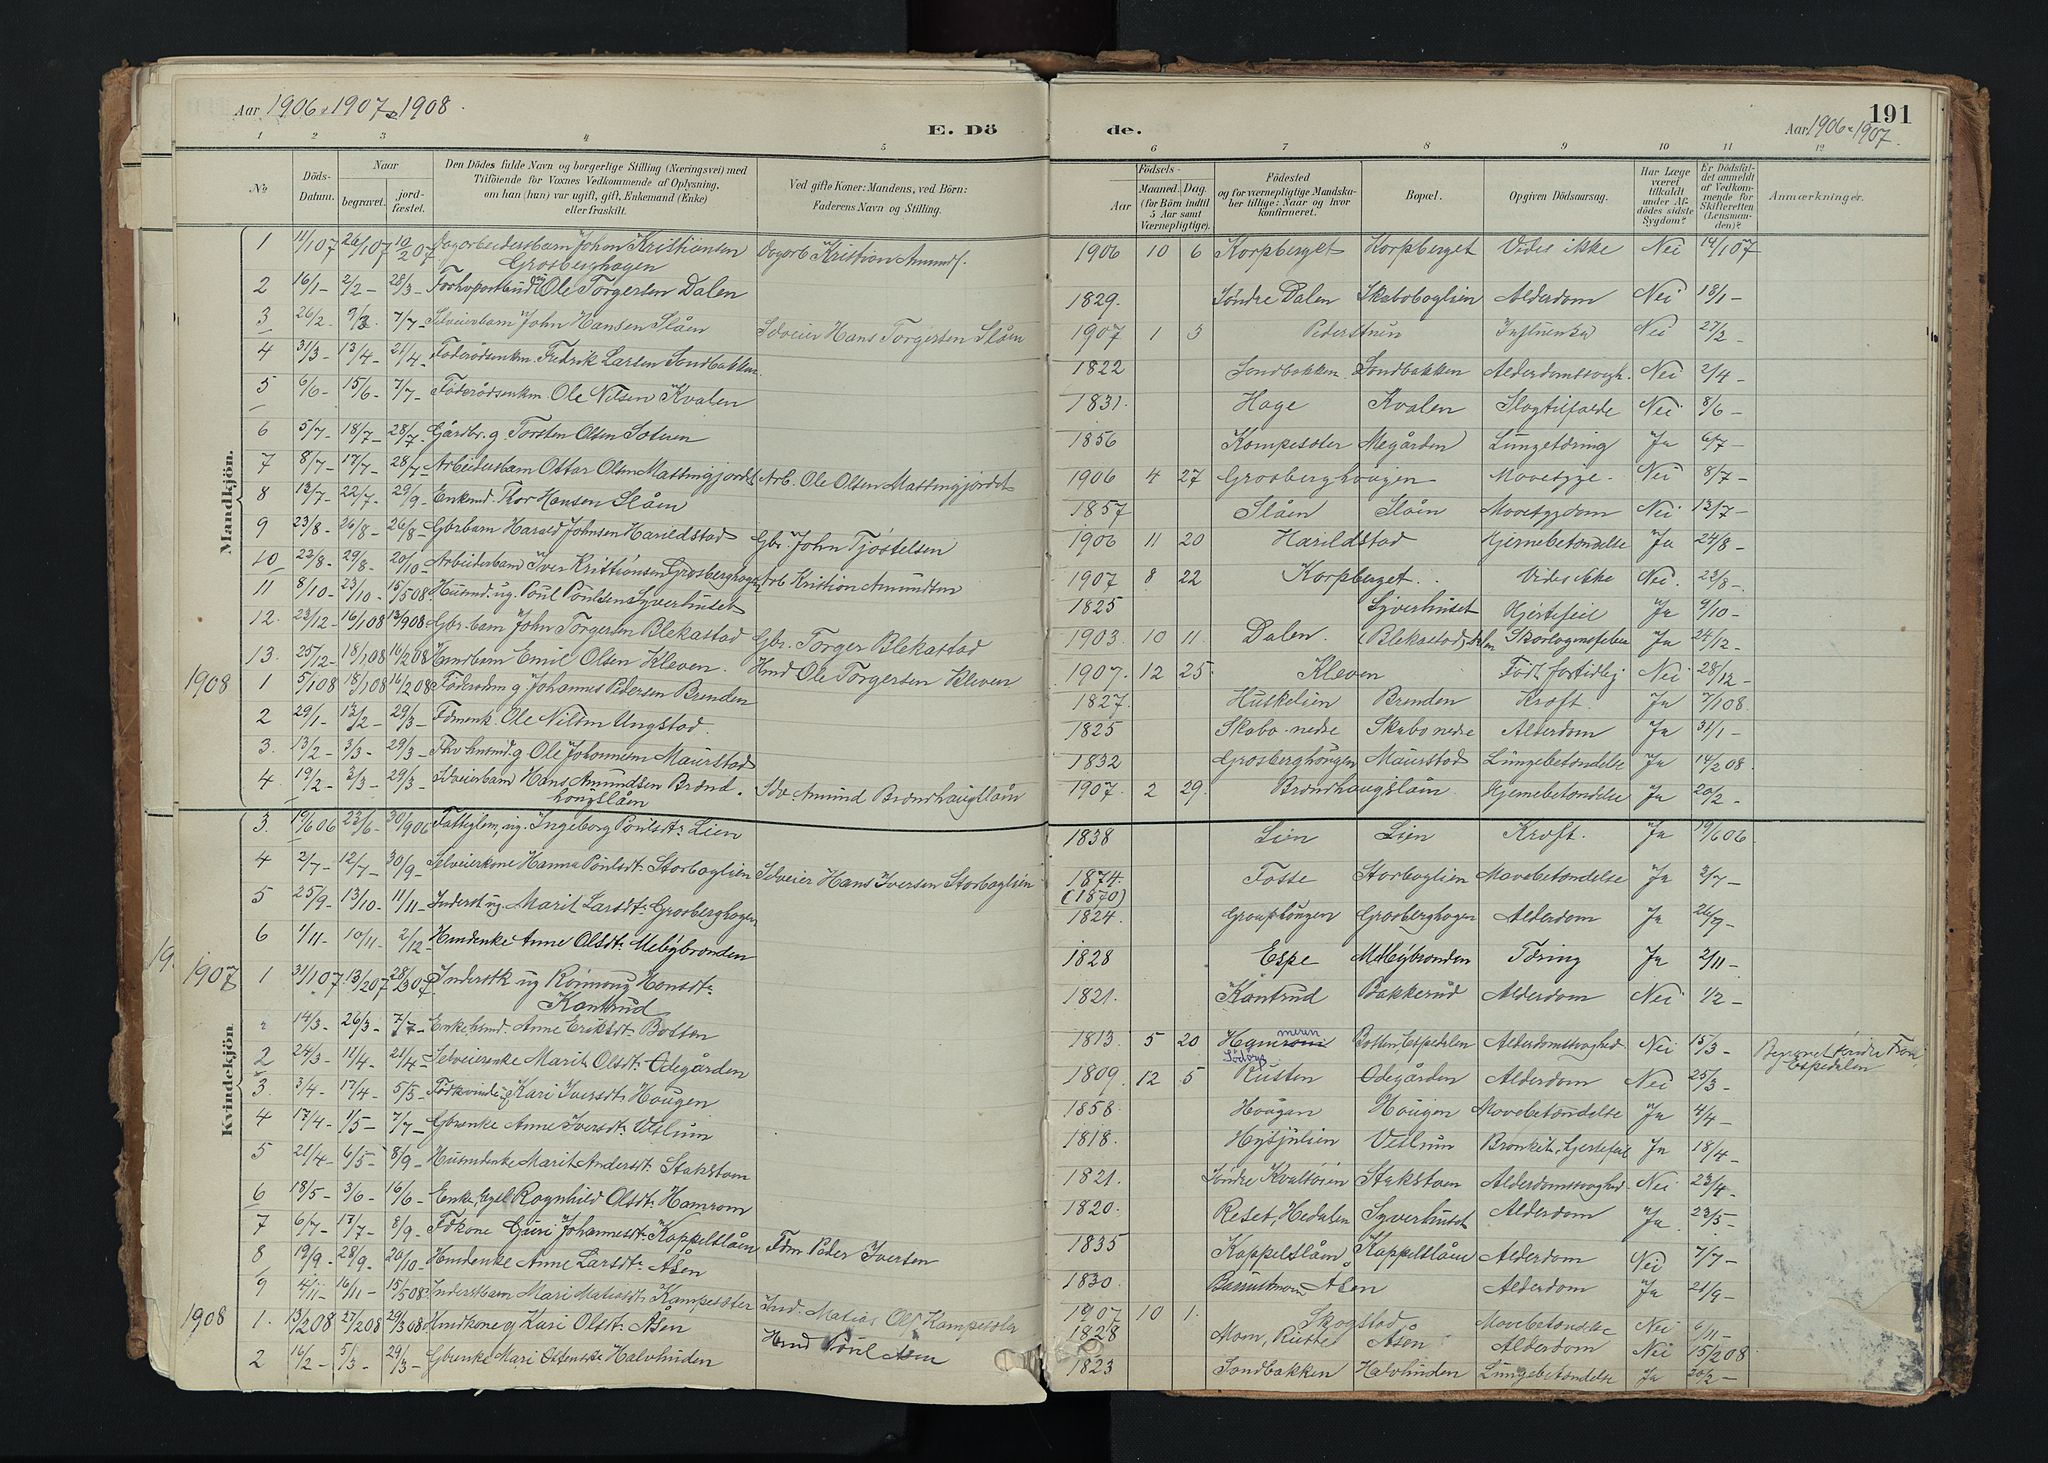 Aar 1906 & 1907 & 1908.
E. Dö
de.
191
Aar 1906 & 1907.
1 2 3 4 5 6 7 8 9 10 11 12
No
Döds-Datum.
Naar
begravet.
jord-fæstet.
Den Dödes fulde Navn og borgerlige Stilling (Næringsvei) med
Tilföiende for Voxnes Vedkommende af Oplysning,
om han (hun) var ugift, gift, Enkemand (Enke)
eller fraskilt.
Ved gifte Koner: Mandens, ved Börn:
Faderens Navn og Stilling.
Födsels-
Aar
Maaned. Dag.
(for Börn indtil
5 Aar samt
Værnepligtige).
Födested
og for værnepligtige Mandska-
ber tillige: Naar og hvor
konfirmeret.
Bopæl.
Opgiven Dödsaarsag.
Har Læge
været
tilkaldt
under Af-
dödes sidste
Sygdom?
Er Dödsfal-
det anmeldt
af Vedkom-
mende for
Skifteretten
(Lensman-
den)?
Anmærkninger.
Mandkjön.
1 11/1 07 26/1 07 10/2 07 Dagarbeidersbarn Johan Kristiansen Grosberghagen Dagarb Kristian Amunds. 1906 10 6 Korpberget Korpberget Vides ikke Nei 14/1 07
2 16/1 - 2/2 - 28/3 - Ole Torgersen Dalen 1829. Søndre Dalen Skabobaglien Alderdom Nei 18/1 -
3 26/2 9/3 7/7 - Selveierbarn John Hansen Slåen Selveier Hans Torgersen Slåen 1907 1 3 Influenka Nei 27/2 -
4 31/3 - 13/4 - 21/4 - Føderådsenkm. Fredrik Larsen Sondbakken 1822 Sondbakken Sondbakken Alderdomssvagh. Nei 2/4 -
5 6/6 - 15/6 - 7/7 - Føderådsenkm. Ole Nilsen Kvalen 1831. Hage Kvalen Slagtilfælde Nei 8/6 -
6 5/7 - 18/7 - 28/7 - Gårdbr. g. Torsten Olsen 1856 Kampesæter Megården Lungetæring Ja 6/7 -
7 8/7 - 17/7 - 28/7 - Arbeidersbarn Ottar Olsen Arb. Ole Olsen 1906 4 27 Grosberghougen Mavesyge. Nei 8/7 -
8 13/7 - 22/7 - 29/9 - Enkemd. Thor Hansen Slåen 1857 Slåen Slåen Mavesygdom Nei 13/7 -
9 23/8 - 26/8 - 26/8 - Gbrbarn Harald Johnsen Harildstad Gbr. John Tjøstelsen 1906 11 20 Harildstad Hjernebetændelse Ja 24/8 -
10 23/8 - 29/8 - 20/10 - Arbeiderbarn Iver Kristiansen Grosberghagen Arb Kristian Amundsen 1907 8 22 Korpberget. Vides ikke Nei. 23/8 -
11 8/10 - 23/10 - 15/5 08 Husmd. ug. Poul Poulsen Syverhuset 1825 Syverhuset Hjertefeil Ja 9/10 -
12. 23/12 - 16/1 08 13/9 08 Gbr. barn John Torgersen Blekastad Gbr. Torger Blekastad 1903. 10 11. Dalen. Blekastad, Dalen Skarlagensfeber Ja 24/12 -
13. 25/12 - 18/1 08 16/2 08 Husmdbarn Emil Olsen Kleven. Hmd Ole Torgersen Kleven 1907. 12 25. Kleven Født fortidlig Nei 28/12 -
1908 1 5/1 08 18/1 08 16/2 08 g Johannes Pedersen Brenden 1827. Huskelien Brenden Kræft. Ja 7/1 08
2 29/1 - 13/2 - 29/3 - Fdmenk. Ole Nilsen Ungstad. 1825 Skabo nedre Skabo nedre Alderdom Ja 31/1 -
3. 13/2 - 3/3 - 29/3 - g Ole Johannesen Maurstad 1832 Grosberghougen Maurstad Lungebetændelse Ja 14/2 08.
4. 19/2 - 3/3 - 29/3 - Selveierbarn Hans Amundsen Brønd-haugslåen Selv. Amund Brøndhaugslåen 1907. 2 29. Brøndhaugslåen Hjernebetændelse Ja 20/2 -
Kvindekjön.
3. 19/6 06 23/6 - 30/9 06 Fattiglem, ug. Ingeborg Poulsdtr. Lien 1838 Lien Lien Kræft. Ja 19/6 06
4 2/7 - 12/7 - 30/9 - Selveierkone Hanna Poulsdtr. Storbaglien Selveier Hans Iversen Storbaglien 1874. (1870) Fosse Storbaglien Mavebetændelse Ja 3/7 -
5 25/9 - 13/10 - 11/11 - Inderst ug. Marit Larsdtr. Grosberghagen 1824. Grosberghagen Alderdom Ja 26/9 -
6 1/11 - 10/11 - 2/12 - Hmdenke Anne Olsdtr. Mebybrænden 1828 Espe Mebybrænden Tæring Ja 2/11 -
1907 1 31/1 07. 13/2 07 28/3 07 Inderstk ug Rønnaug Hansdtr. Kantrud 1821. Kantrud Bakkerud Alderdom Nei 1/2 -
14/3 - 26/3 - 7/7 - Anne Eriksdtr Bosten 1813 5 20 Bosten, Espedalen Alderdomssvaghed Nei 15/3 - Espedalen
2 24/3 - 11/4 - 21/4 - Selveierenke Marit Olsdtr. Ødegården 1809. 12 5 Sødorp Rusten Ødegården Alderdom Nei 25/3 -
3 3/4 - 17/4 - 5/5 - Kari Iversdtr Hougen 1858. Hougen Hougen Mavebetændelse Ja 4/4 -
4 17/4 - 1/5 - 7/7 - Gbrenke Anne Iversdtr. Veslum 1818. Veslum Bronkit, hjertefeil Ja 18/4 -
5 21/4 - 6/5 - 8/9 - Husmdenke Marit Andersdtr. Stakstoen 1821. Søndre Kvaltoien Stakstoen Alderdomssvaghed Nei 23/4 -
6 18/5 - 3/6 - 16/6 - Enke, Ragnhild Olsdtr Hamrom 1820. Reset, Hedalen Syverhuset Alderdom Ja 23/5 -
7 6/7 - 17/7 - 8/9 - Fdkone Guri Johannesdtr. Kappelslåen Fdm. Peder Iversen 1835 Kappelslåen Kappelslåen Alderdom Nei 7/7 -
8 19/9 - 28/9 - 20/10 - Hmdenke Anne Larsdtr. Åsen 1830. Åsen Alderdom Ja 21/9 -
9 4/11 - 16/11 - 15/5 08 Inderstbarn Mari Matiasdtr. Kampesæter Ind. Matias Ols. Kampesæter 1907 10 1. Skogstad Mavebetændelse Nei 6/11 -
1908 1. 13/2 08 27/2 08 29/3 08 Hmdkone g Kari Olsdtr. Åsen Hmd Poul Åsen 1828 Åsen Alderdom Nei 15/2 08
2 16/2 - 5/3 - 29/3 - Gbrenke Mari Halvhuden 1823 Sondbakken Halvhuden Lungebetændelse Ja 20/2 -